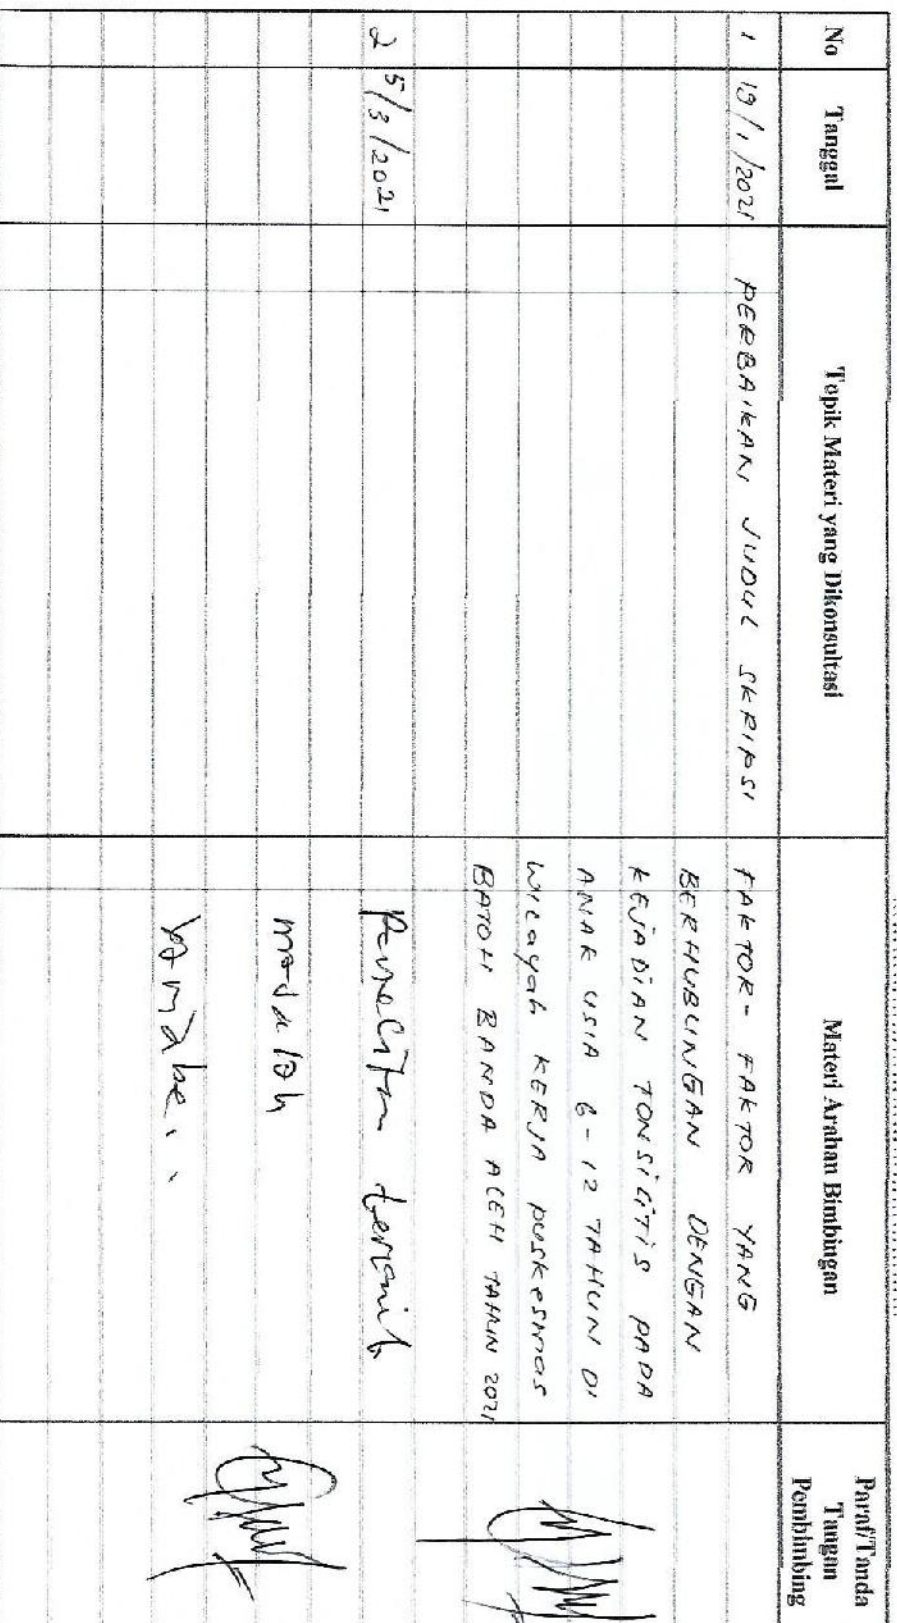 No
Tanggal
Topik Materi yang Dikonsultasi
Materi Arahan Bimbingan
Paraf/Tanda
Tangan
Pembimbing
1
19/1/2021
PERBAIKAN JUDUL SKRIPSI
FAKTOR-FAKTOR YANG
BERHUBUNGAN DENGAN
KEJADIAN TONSILITIS PADA
ANAK USIA 6-12 TAHUN DI
Wilayah KERJA puskesmas
BATOH BANDA ACEH TAHUN 2021
2
5/3/2021
Penelitan terkait
masalah